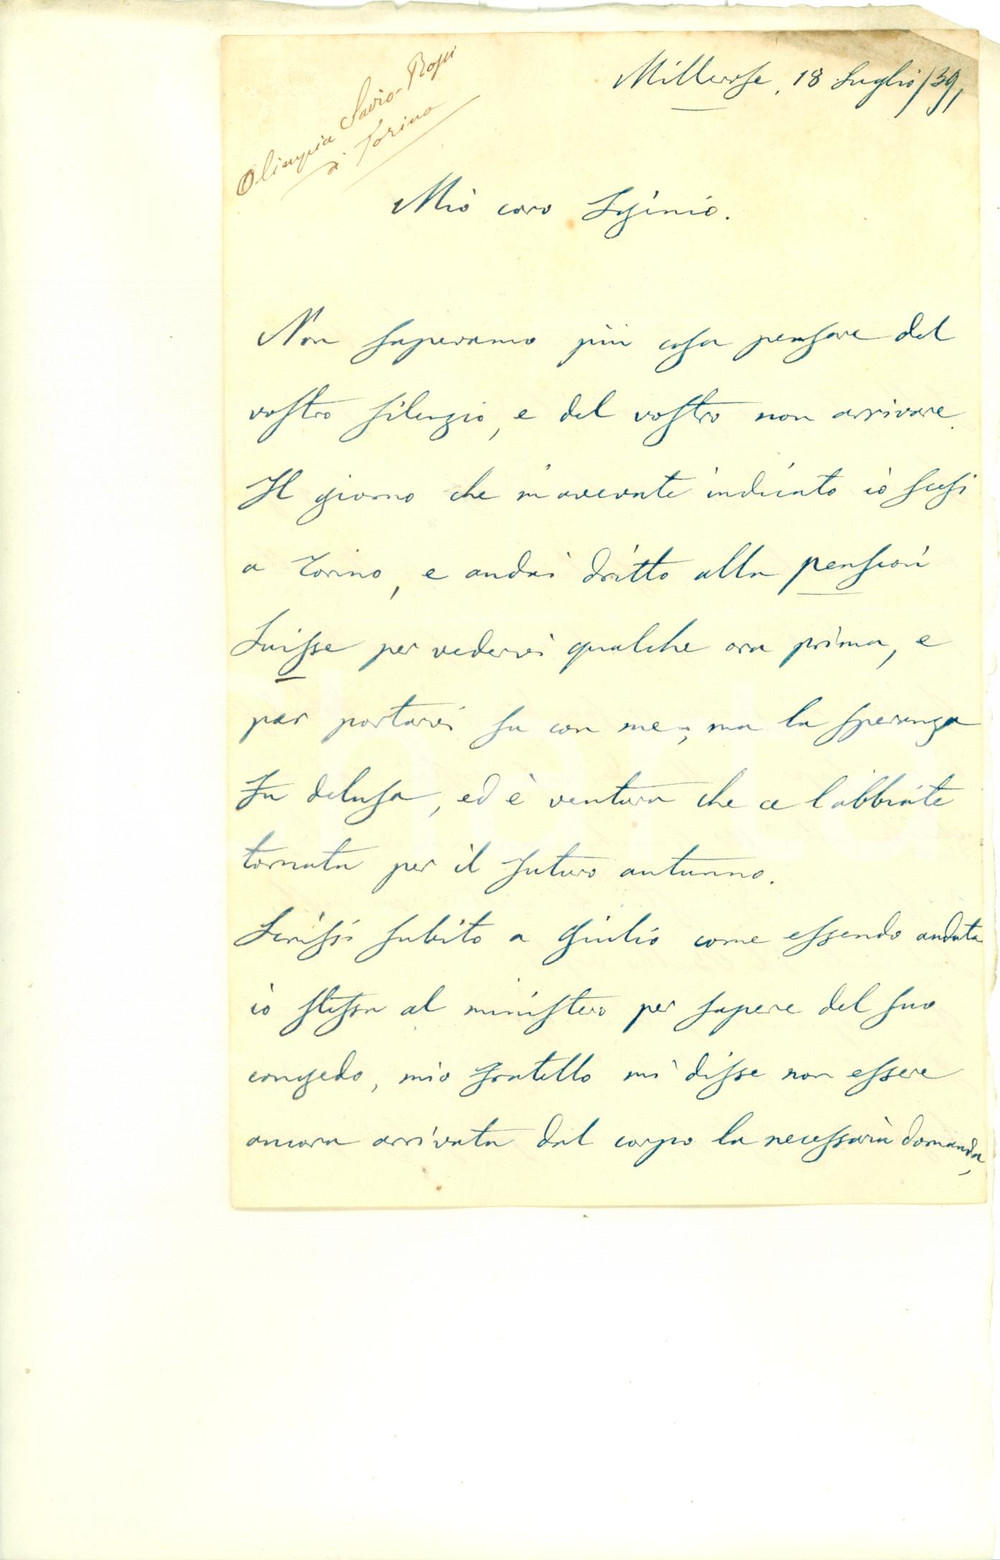 Olimpia Savio-Rossi
di Torino
Millerose, 18 Luglio/39,
Mio caro Iginio.
Non sapevamo più cosa pensare del
vostro silenzio, e del vostro non arrivare.
Il giorno che m'avevate indicato io scesi
a Torino, e andai dritto alla pension
Suisse per vedervi qualche ora prima, e
per portarvi su con me; ma la speranza
fu delusa, ed è ventura che ce l'abbiate
tornata per il futuro autunno.
Scrissi subito a Giulio come essendo andata
io stessa al ministero per sapere del suo
congedo, mio fratello mi disse non essere
ancora arrivata dal corpo la necessaria domanda,